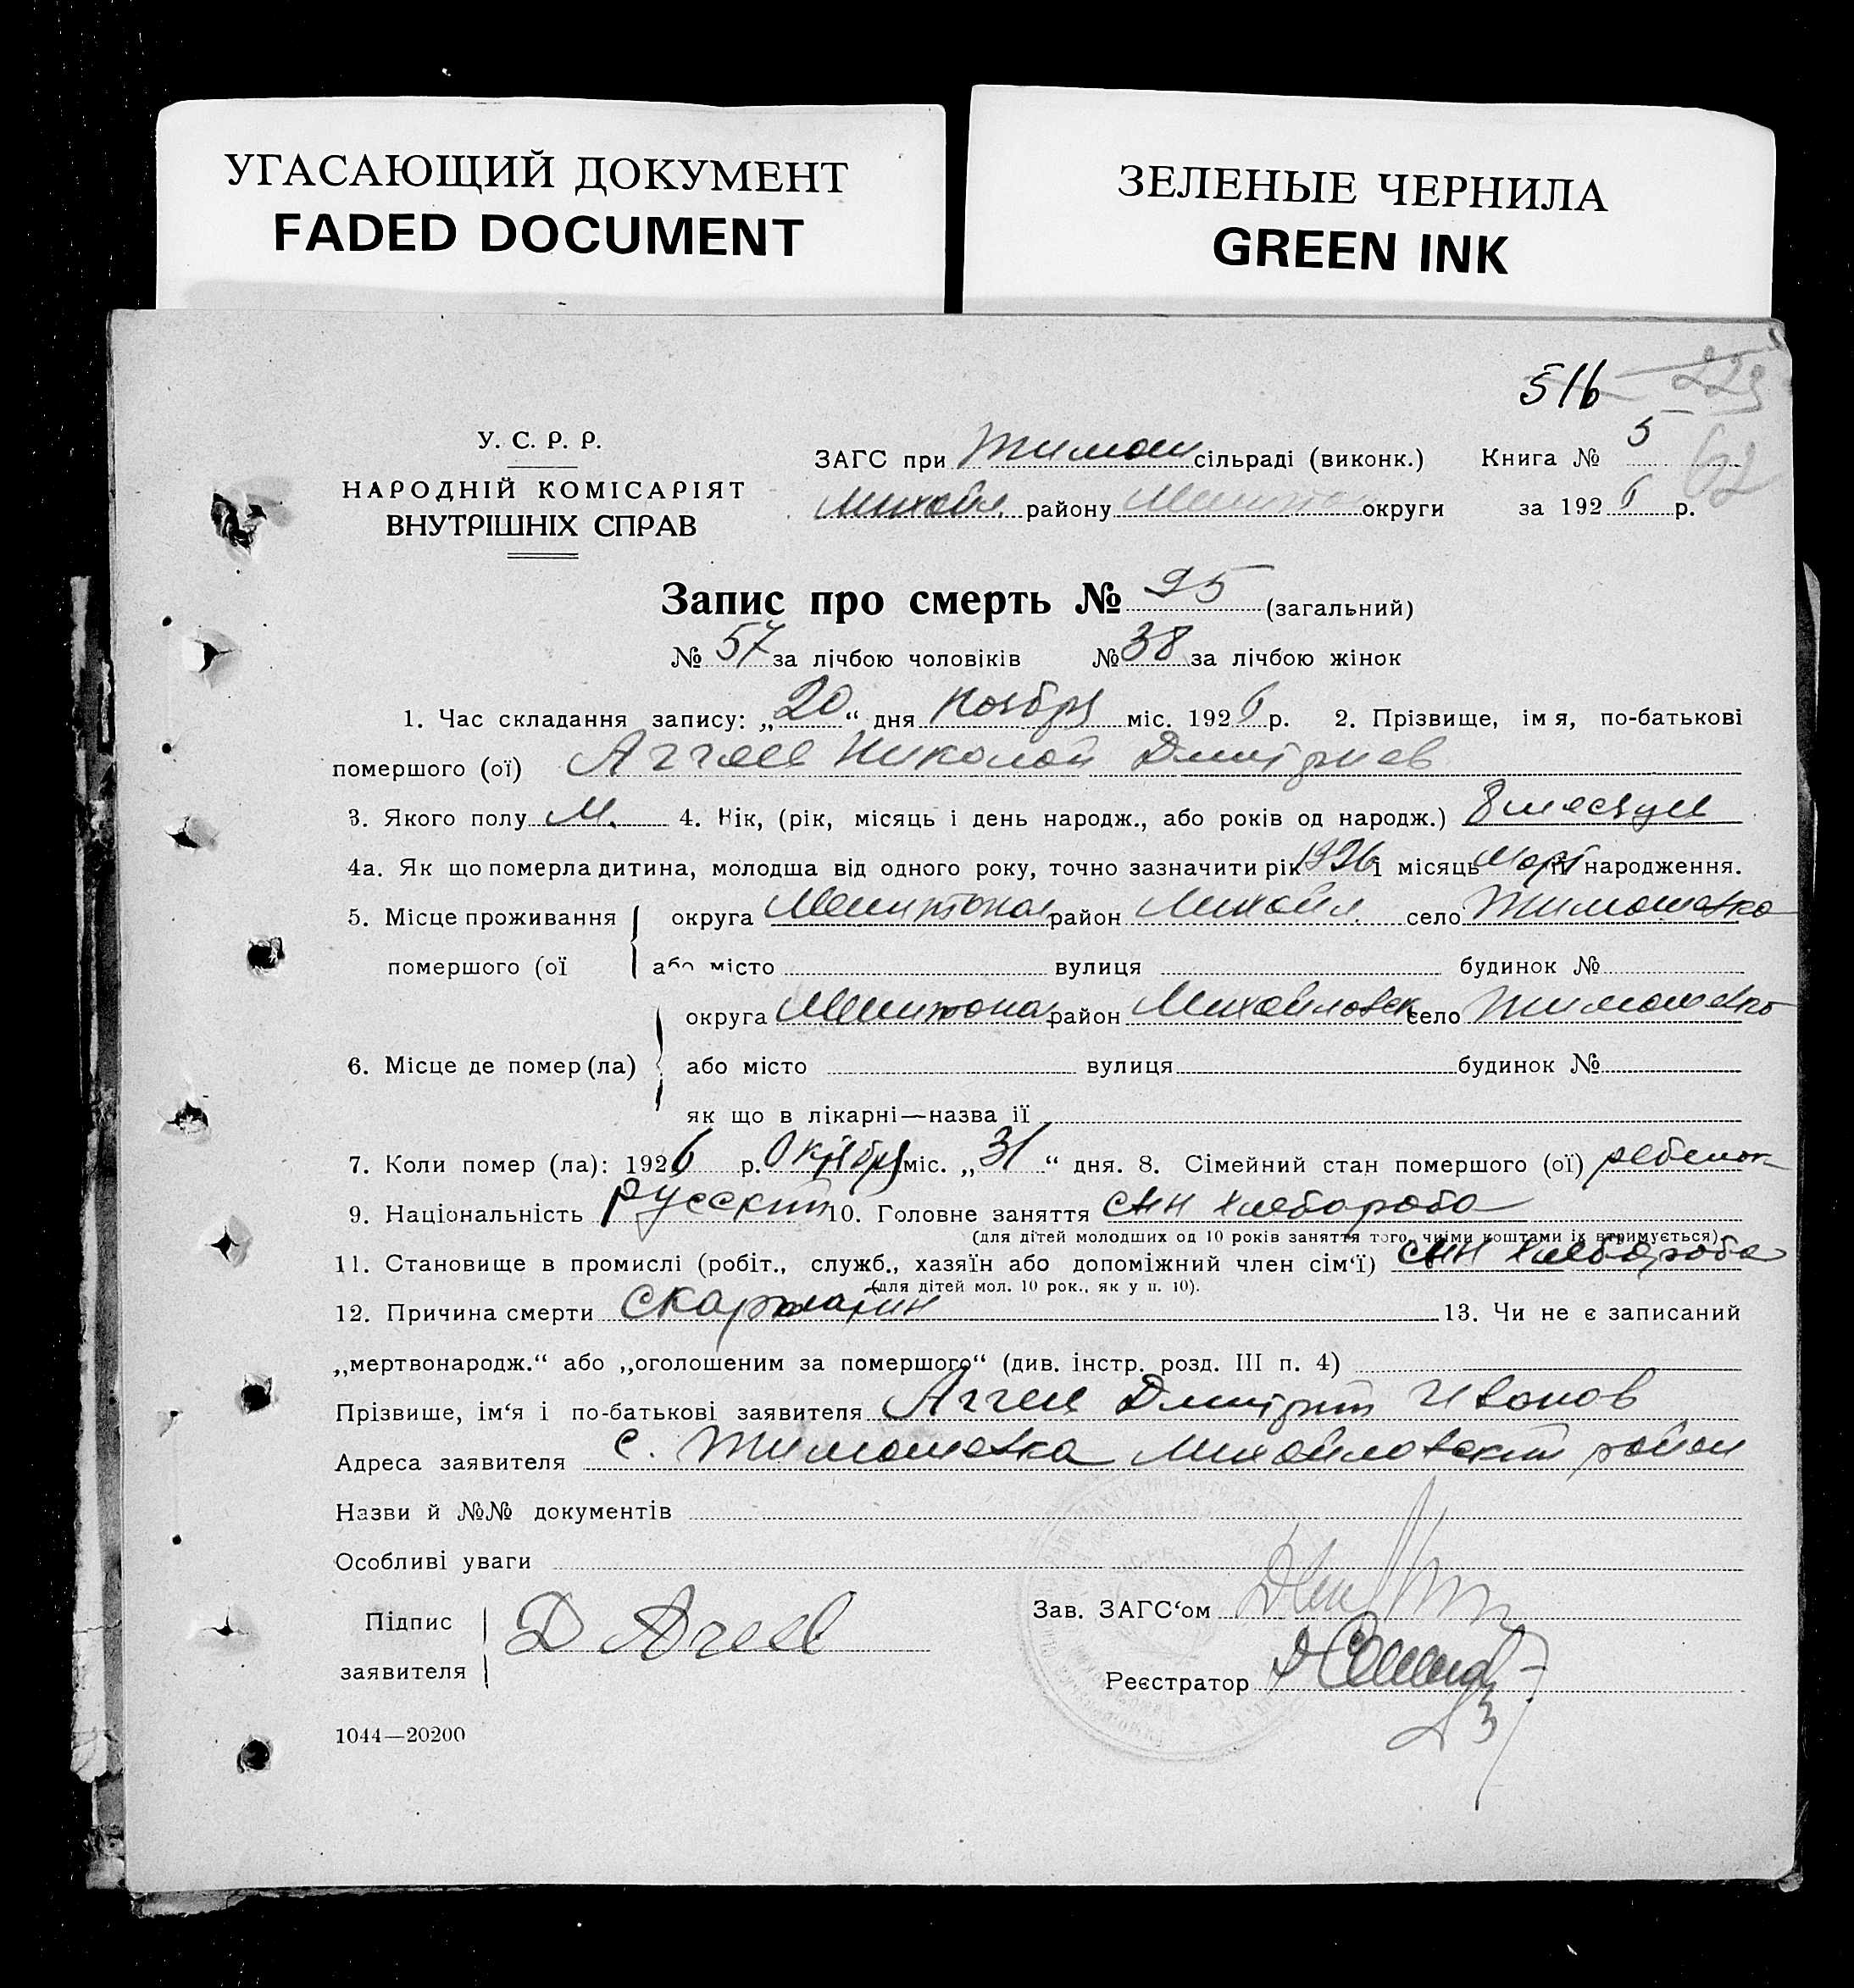 УГАСАЮЩИЙ ДОКУМЕНТ
FADED DOCUMENT
ЗЕЛЕНЫЕ ЧЕРНИЛА
GREEN INK
516 223
62
У. С. Р. Р.
НАРОДНІЙ КОМІСАРІЯТ
ВНУТРІШНІХ СПРАВ
ЗАГС при Тимош сільраді (виконк.) Книга № 5
Михайл. району Мелитоп округи за 1926 р.
Запис про смерть № 95 (загальний)
№ 57 за лічбою чоловіків № 38 за лічбою жінок
1. Час складання запису: „20“ дня Ноября міс. 1926 р. 2. Прізвище, імя, по-батькові
помершого (ої) Аггеев Николай Дмитриев
3. Якого полу М. 4. Вік, (рік, місяць і день народж., або років од народж.) 8 месяцев
4а. Як що померла дитина, молодша від одного року, точно зазначити рік 1926 і місяць Март народження.
5. Місце проживання помершого (ої округа Мелитопол район Михайл. село Тимошевка
або місто вулиця будинок №
6. Місце де помер (ла) округа Мелитопол район Михайловск село Тимошевко
або місто вулиця будинок №
як що в лікарні—назва її
7. Коли помер (ла): 1926 р. Октября міс. „31“ дня. 8. Сімейний стан помершого (ої) ребенок
9. Національність русский 10. Головне заняття сын хлебороба
(для дітей молодших од 10 років заняття того, чиїми коштами їх втримується)
11. Становище в промислі (робіт., служб., хазяїн або допоміжний член сім‘ї) сын хлебороба
(для дітей мол. 10 рок., як у п. 10).
12. Причина смерти скарлатин 13. Чи не є записаний
„мертвонародж.“ або „оголошеним за помершого“ (див. інстр. розд. III п. 4)
Прізвише, ім‘я і по-батькові заявителя Аггеев Дмитрий Иванов
Адреса заявителя с. Тимошевка Михайловский район
Назви й №№ документів
Особливі уваги
Підпис заявителя Д Агеев
Зав. ЗАГС‘ом
Реєстратор
1044—20200